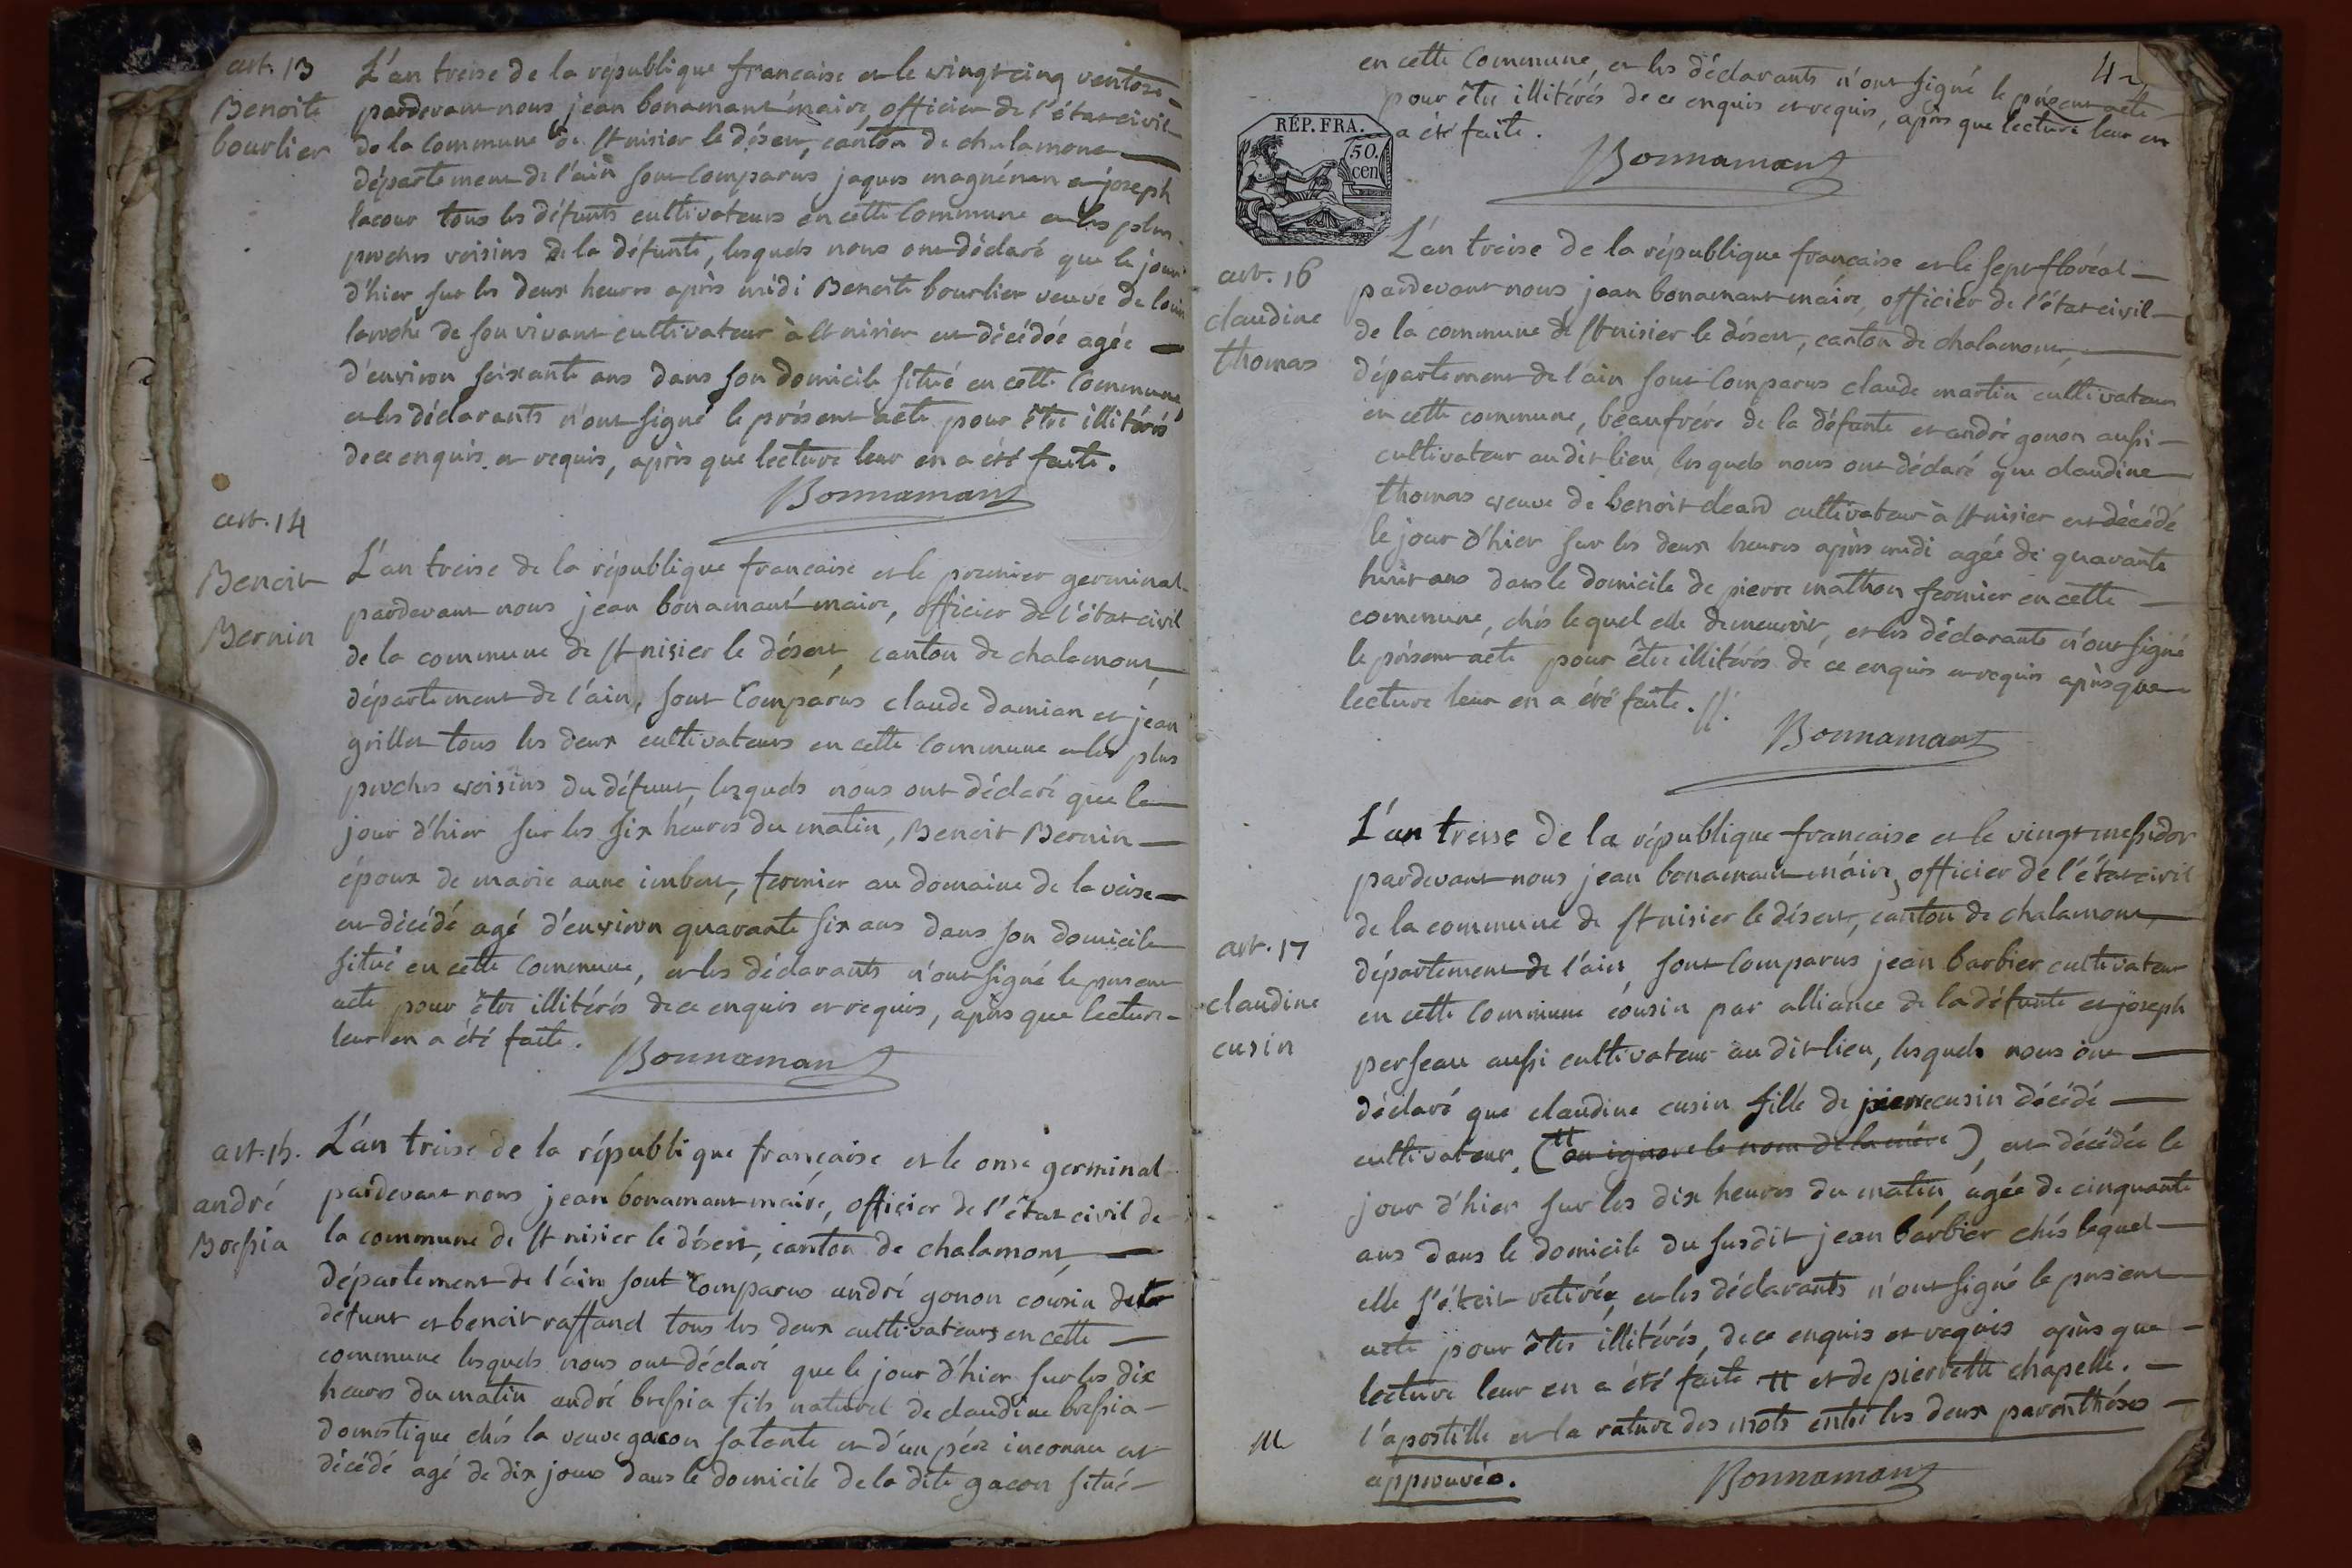 art. 13
Benoite
bourlier
L'an treise de la république francaise et le vingt cinq ventose
pardevant nous jean bonamant maire, officier de l'état civil
de la Commune de st nisier le désert, canton de chalamont
département de l'ain sont Comparus jaques magnénan et joseph
lacour tous les défunts cultivateurs en cette Commune et les plus
proches voisins de la défunte, lesquels nous ont déclaré que le jour
d'hier sur les deux heures après midi Benoite bourlier veuve de louis
laroche de son vivant cultivateur à st nisier est décédée agée
d'environ soixante ans dans son domicile situé en cette Commune
et les déclarants n'ont signé le présent acte pour être illitérés
de ce enquis et requis, après que lecture leur en a été faite.
Bonnamant
art. 14
Benoit
Bernin
L'an treise de la république francaise et le premier germinal
pardevant nous jean bonamant maire, officier de l'état civil
de la commune de st nisier le désert, canton de chalamont
département de l'ain, sont Comparus claude damian et jean
grillet tous les deux cultivateurs en cette Commune et les plus
proches voisins du défunt, lesquels nous ont déclaré que le
jour d'hier sur les six heures du matin, Benoit Bernin
époux de marie anne imbert, fermier au domaine de la veise
est décédé agé d'environ quarante six ans dans son domicile
situé en cette Commune, et les déclarants n'ont signé le present
acte pour être illitérés de ce enquis et requis, après que lecture
leur en a été faite.
Bonnamant
art. 15.
andré
Bressia
L'an treise de la république francaise et le onse germinal
pardevant nous jean bonamant maire, officier de l'état civil de
la commune de st nisier le désert, canton de chalamont,
département de l'ain sont Comparus andré gonon cousin
défunt et benoit raffand tous les deux cultivateurs en cette
commune lesquels nous ont déclaré que le jour d'hier sur les dix
heures du matin andré bressia fils naturel de claudine bressia
domestique chés la veuve gacon sa tante et d'un pére inconnu est
décédé agé de dix jours dans le domicile de la dite gacon situé
42
en cette Commune, et les déclarants n'ont signé le présent acte
pour être illitérés de ce enquis et requis, après que lecture leur en
a été faite.
Bonnamant
RÉP. FRA.
50.
cen
art. 16
claudine
thomas
L'an treise de la république francaise et le sept floréal
pardevant nous jean bonamant maire, officier de l'état civil
de la commune de st nisier le désert, canton de chalamont,
département de l'ain sont Comparus claude martin cultivateur
en cette commune, beaufrére de la défunte et andré gonon aussi
cultivateur au dit lieu, lesquels nous ont déclaré que claudine
thomas veuve de benoit cleard cultivateur à st nisier est décédé
le jour d'hier sur les deux heures après midi agée de quarante
huit ans dans le domicile de pierre mathon fermier en cette
commune, chés lequel elle demeuroit, et les déclarants n'ont signé
le présent acte pour être illitérés de ce enquis et requis après que
lecture leur en a été faite.
Bonnamant
art. 17
claudine
cusin
L'an treise de la république francaise et le vingt messidor
pardevant nous jean bonamant maire, officier de l'état civil
de la commune de st nisier le désert, canton de chalamont,
département de l'ain sont Comparus jean barbier cultivateur
en cette Commune cousin par alliance de la défunte et joseph
perseau aussi cultivateur au dit lieu, lesquels nous ont
déclaré que claudine cusin fille de pierre cusin décédé
cultivateur, (tt on ignore le nom de la mére), est décédée le
jour d'hier sur les dix heures du matin, agée de cinquante
ans dans le domicile du susdit jean barbier chés lequel
elle s'étoit retirée, et les déclarants n'ont signé le present
acte pour être illitérés, de ce enquis et requis après que
lecture leur en a été faite tt et de pierrette chapelle.
l'apostille et la rature des mots entre les deux parenthéses
approuvés.
Bonnamant